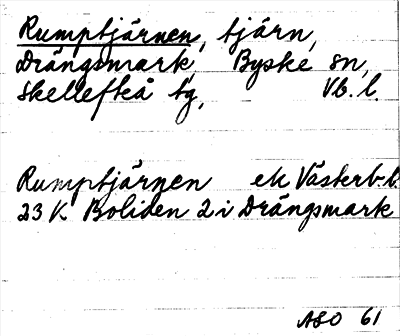 Rumptjärnen, tjärn,
Drängsmark, Byske sn,
Skellefteå tg, Vb. l.
Rumptjärnen ek Västerb.l.
23 K Boliden 2 i Drängsmark
ASO 61